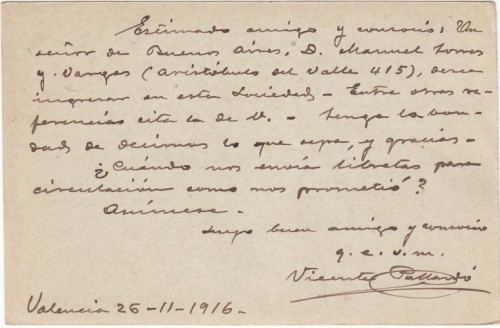 Estimado amigo y consocio; Un
señor de Buenos Aires, D. Manuel Torres
y Vargas (Aristóbulo del Valle 415), desea
ingresar en esta Sociedad - Entre otras re-
ferencias cita la de V. - Tenga la bon-
dad de decirnos lo que sepa, y gracias -
¿Cuándo nos envía libretas para
circulación como nos prometió?
Anímese -
Suyo buen amigo y consocio
q. e. s. m.
Vicente Pallardó
Valencia 26-11-1916 -